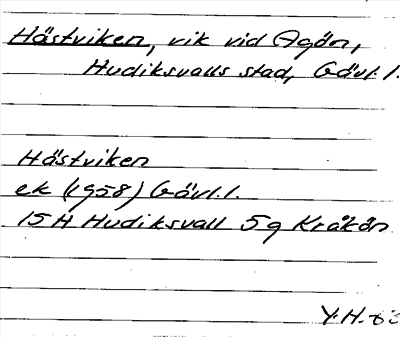 Hästviken, vik vid Agön,
Hudiksvalls stad, Gävl. l.
Hästviken
ek (1958) Gävl. l.
15 H Hudiksvall 5g Kråkön
Y.H.